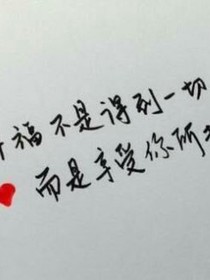 福不是得到一切
而是享受你所